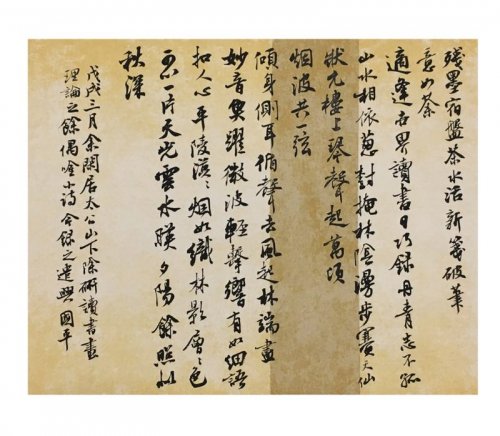 残墨宿盤茶水活新箋破筆
意如茶
適逢世界讀書日巧錄丹青志不孤
山水相依蔥對掩林陰漫步賽天仙
狀元樓上琴聲起萬頃
烟波共一弦
傾身側耳循聲去風起林端畫
妙音與躍微波輕聲響有如細語
扣人心平陵漠漠烟如織林影層層色
不一片天光雲水暎夕陽餘照如
秋深
戊戌三月余閑居太公山下除研讀書畫
理論之餘偶唫小詩今錄之遣興國平